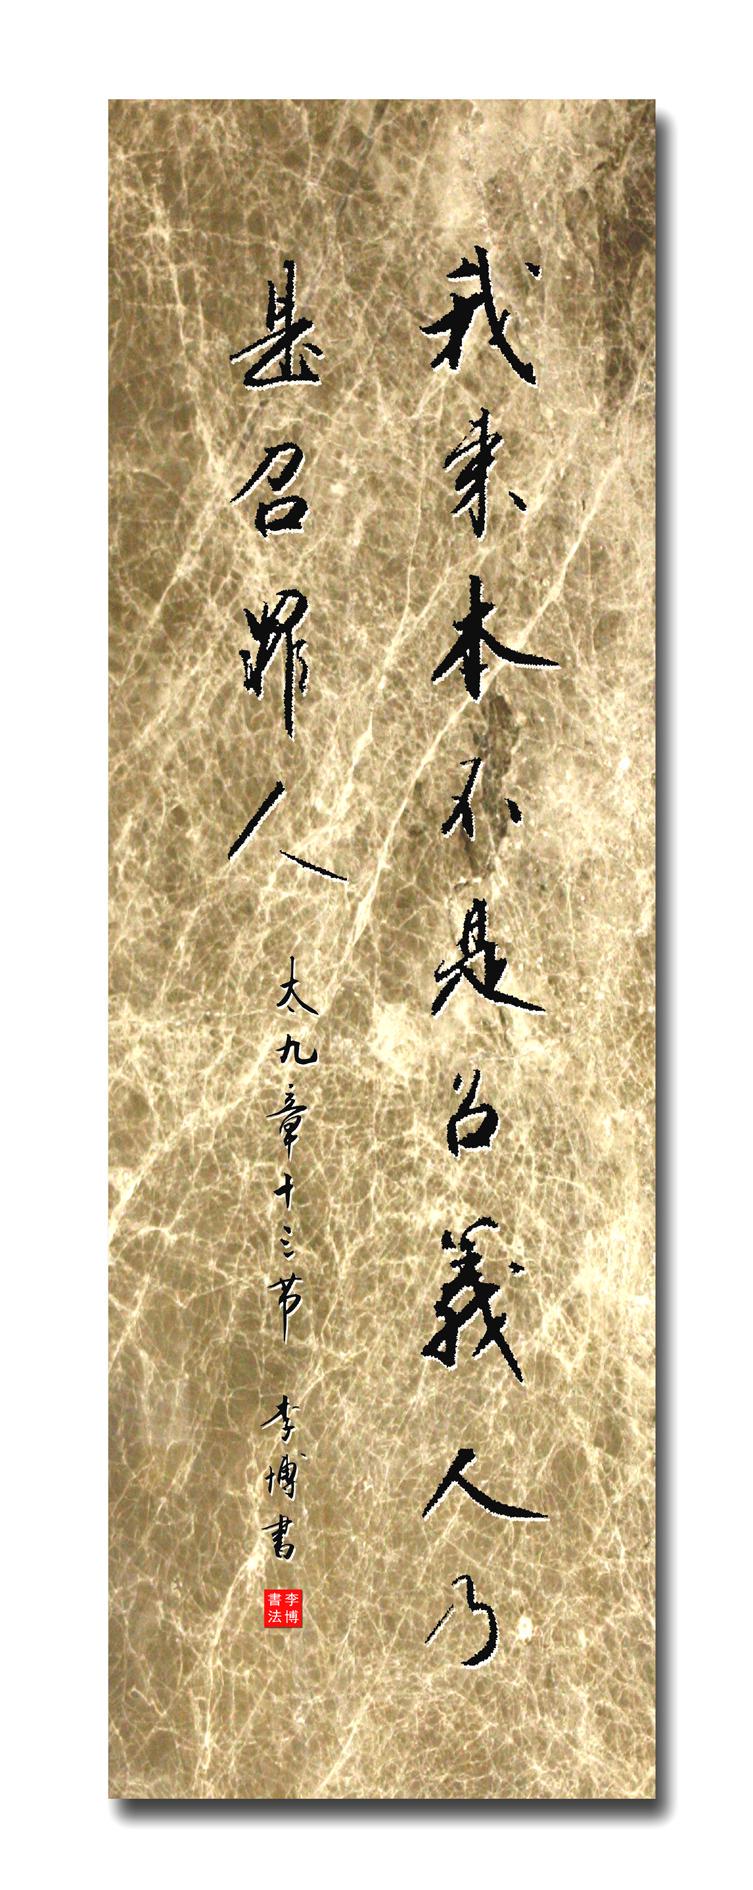 我来本不是召義人乃
是召罪人
太九章十三节
李博書
李博
書法